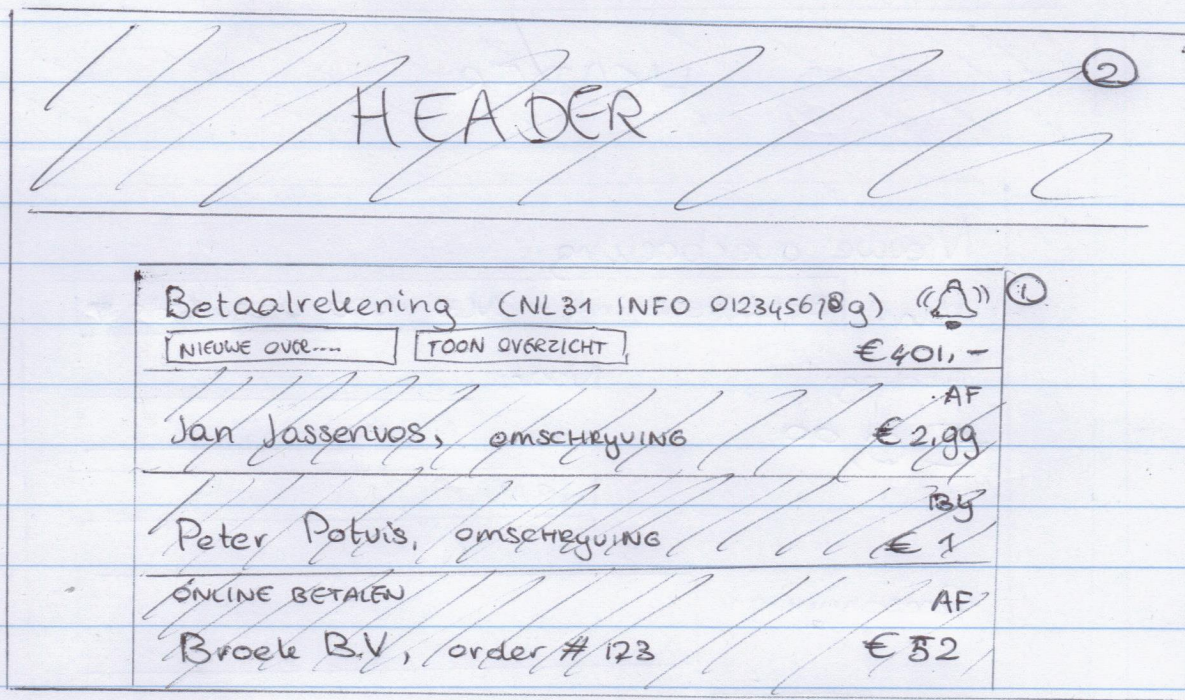 ②
HEADER
Betaalrekening (NL31 INFO 0123456789) ①
NIEUWE OVER.... TOON OVERZICHT € 401,-
AF
Jan Jassenvos, OMSCHRYVING € 2,99
BY
Peter Potvis, OMSCHRYVING € 1
ONLINE BETALEN AF
Broek B.V, order # 123 € 52